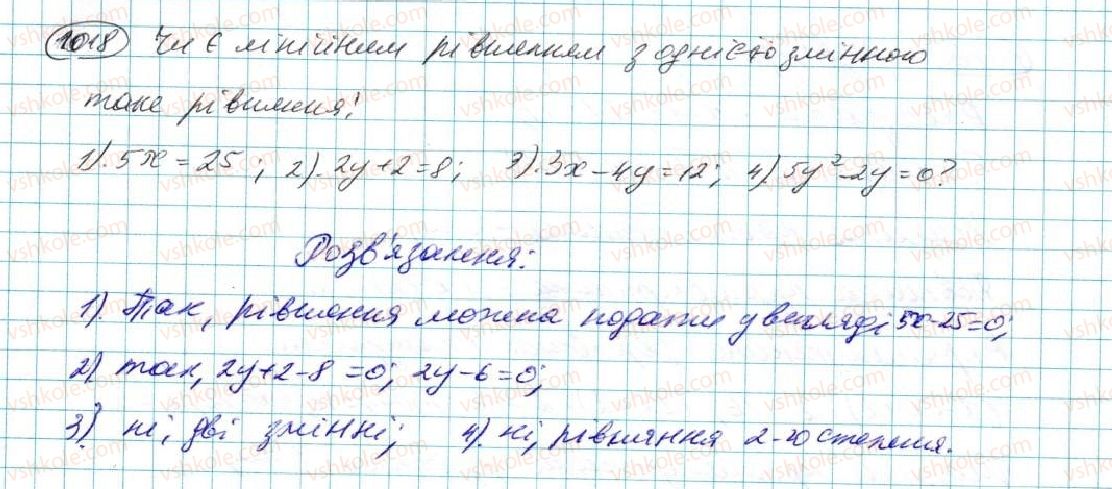 1018 Чи є лінійним рівнянням з однією змінною
таке рівняння:
1). 5x = 25; 2). 2y+2=8; 3). 3x-4y=12; 4). 5y²-2y=0?
Розв'язання:
1). Так, рівняння можна подати у вигляді 5x-25=0;
2) так, 2y+2-8=0; 2y-6=0;
3). ні, дві змінні; 4). ні, рівняння 2-го степеня.